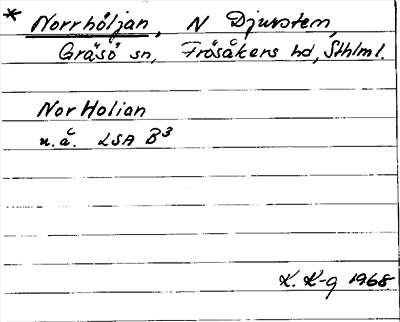 * Norrhöljan, N Djursten,
Gräsö sn, Frösåkers hd, Sthlml.
Nor Holian
u.å. LSA B³
K. K-g 1968